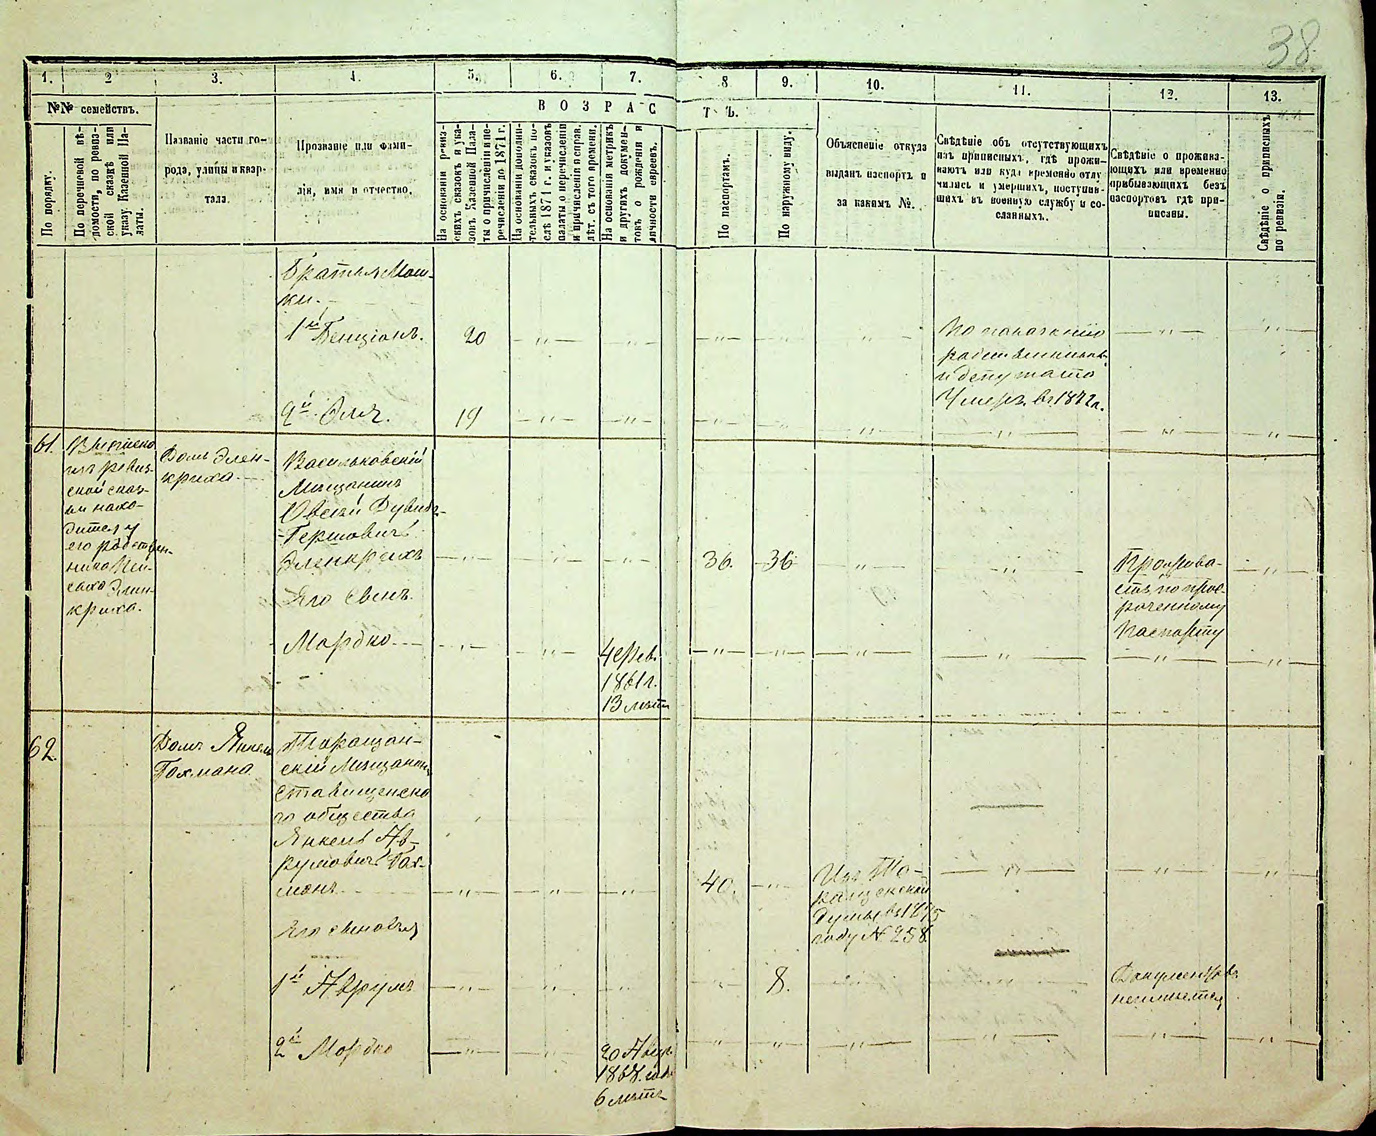 38
1. 2 3. 4. 5. 6. 7. 8 9. 10. 11. 12. 13.
№№ семействъ.
По порядку.
По перечневой вѣ-
домости, по ревиз-
ской сказкѣ или
указу Казенной Па-
латы.
Названіе части го-
рода, улицы и квар-
тала.
Прозваніе или фами-
лія, имя и отчество.
ВОЗРАСТЪ.
На основаніи ревиз-
скихъ сказокъ и ука-
зовъ Казенной Пала-
ты о причисленіи и пе-
речисленіи до 1871 г.
На основаніи дополни-
тельныхъ сказокъ по-
слѣ 1871 г. и указовъ
палаты о перечисленіи
и причисленіи и справ.
лѣт. съ того времени.
На основаніи метрикъ
и другихъ докумен-
товъ о рожденіи и
личности евреевъ.
По паспортамъ.
По наружному виду.
Объясненіе откуда
выданъ паспортъ и
за какимъ №.
Свѣдѣніе объ отсутствующихъ
изъ приписныхъ, гдѣ прожи-
ваютъ или куда временно отлу-
чились и умершихъ, поступив-
шихъ въ военную службу и со-
сланныхъ.
Свѣдѣніе о прожива-
ющихъ или временно
прибывающихъ безъ
паспортовъ гдѣ при-
писаны.
Свѣдѣніе о приписныхъ
по ревизіи.
Братья Мош-
ки.
1й Бенціонъ. 20
По показанію
родственниковъ
и депутата
Умеръ въ 1872 г.
2й Эля. 19
61.
изъ ревиз-
ской сказ-
ки нахо-
дится у
его родствен-
ника Пей-
саха Элен-
криха.
Домъ Элен-
криха
Васильковскій
Мѣщанинъ
Овсей Дувидъ-
-Гершовичъ
Эленкрихъ 36. 36
Прожива-
етъ по прос-
роченному
Паспорту
Его сынъ.
Мордко
4 Февр.
1861 г.
13 лѣтъ
62.
Домъ Янкеля
Гохмана
Таращан-
скій Мѣщанинъ
Ставищенска-
го общества
Янкель Ав-
румовичъ Гох-
манъ 40.
Изъ Та-
ращанской
Думы въ 1875
году № 258.
Его сыновья
1й Аврумъ 8.
Документовъ
неимѣется
2й Мордко
20 Авгу.
1868. года
6 лѣтъ